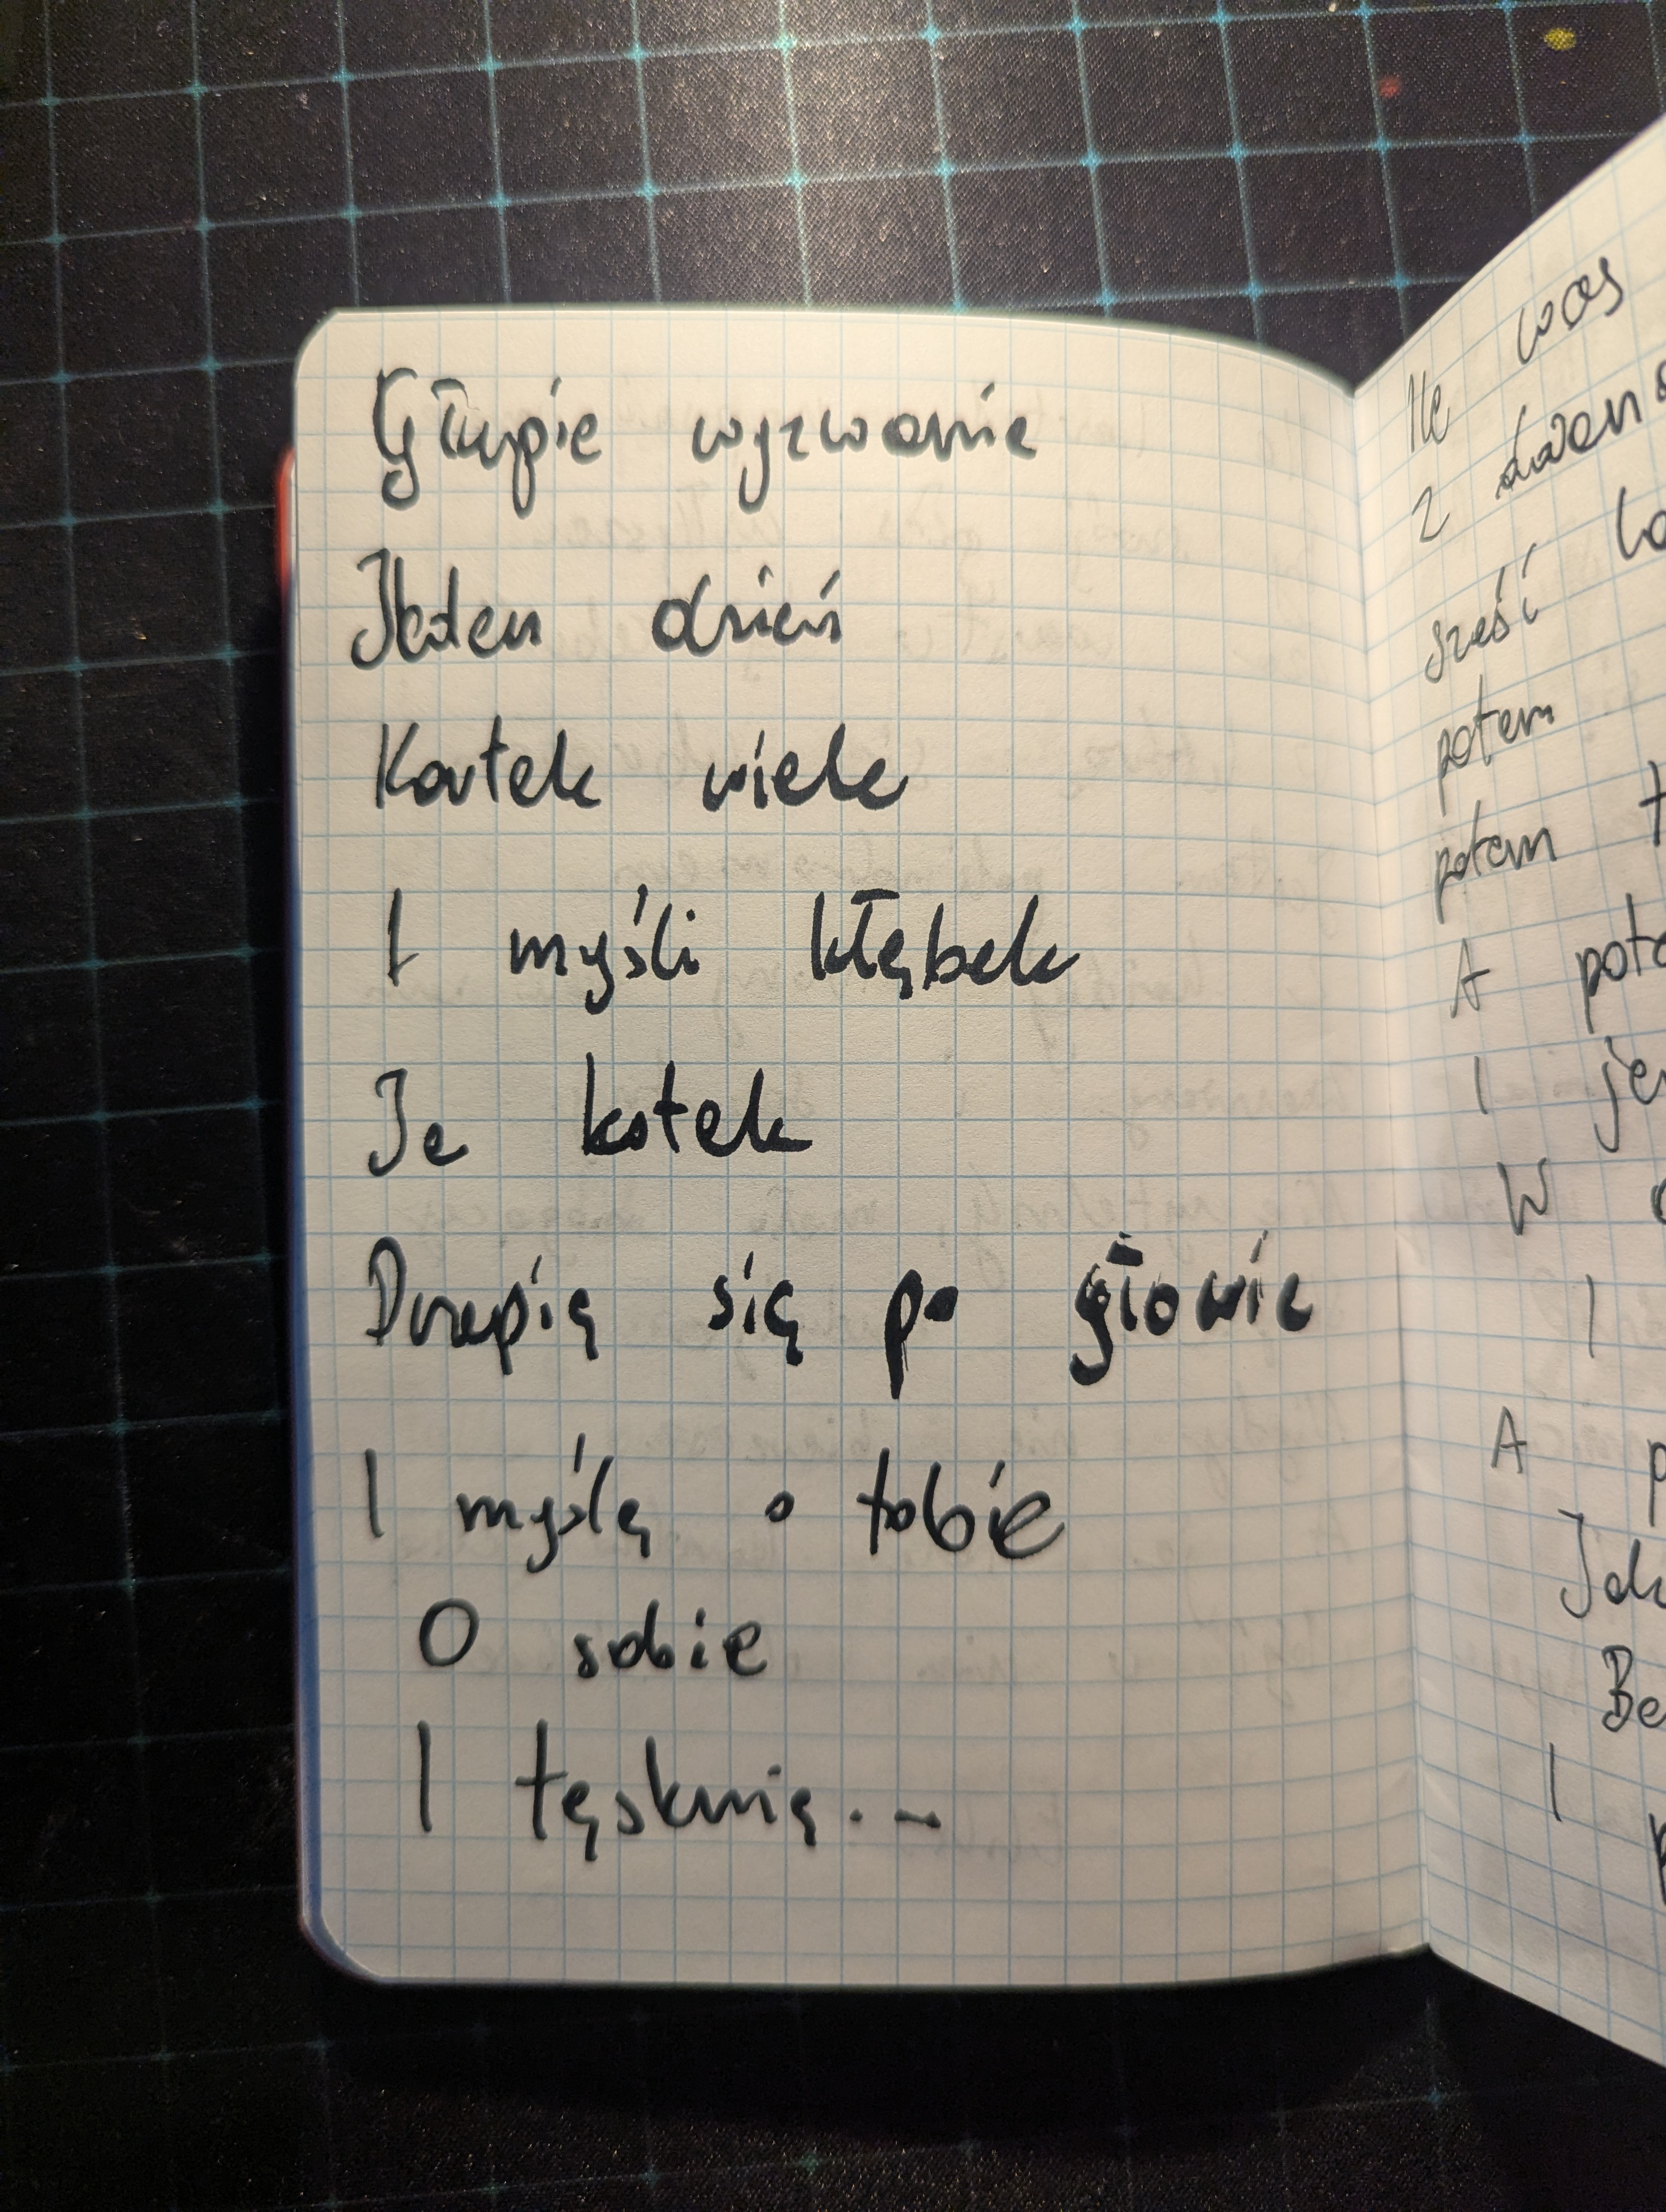 Głupie wyzwanie
Jeden dzień
Kartek wiele
I myśli kłębek
Je kotek
Drapię się po głowie
I myślę o tobie
O sobie
I tęsknię...
Ile was
z
sześć
potem
potem
A
I
W
I
A
I